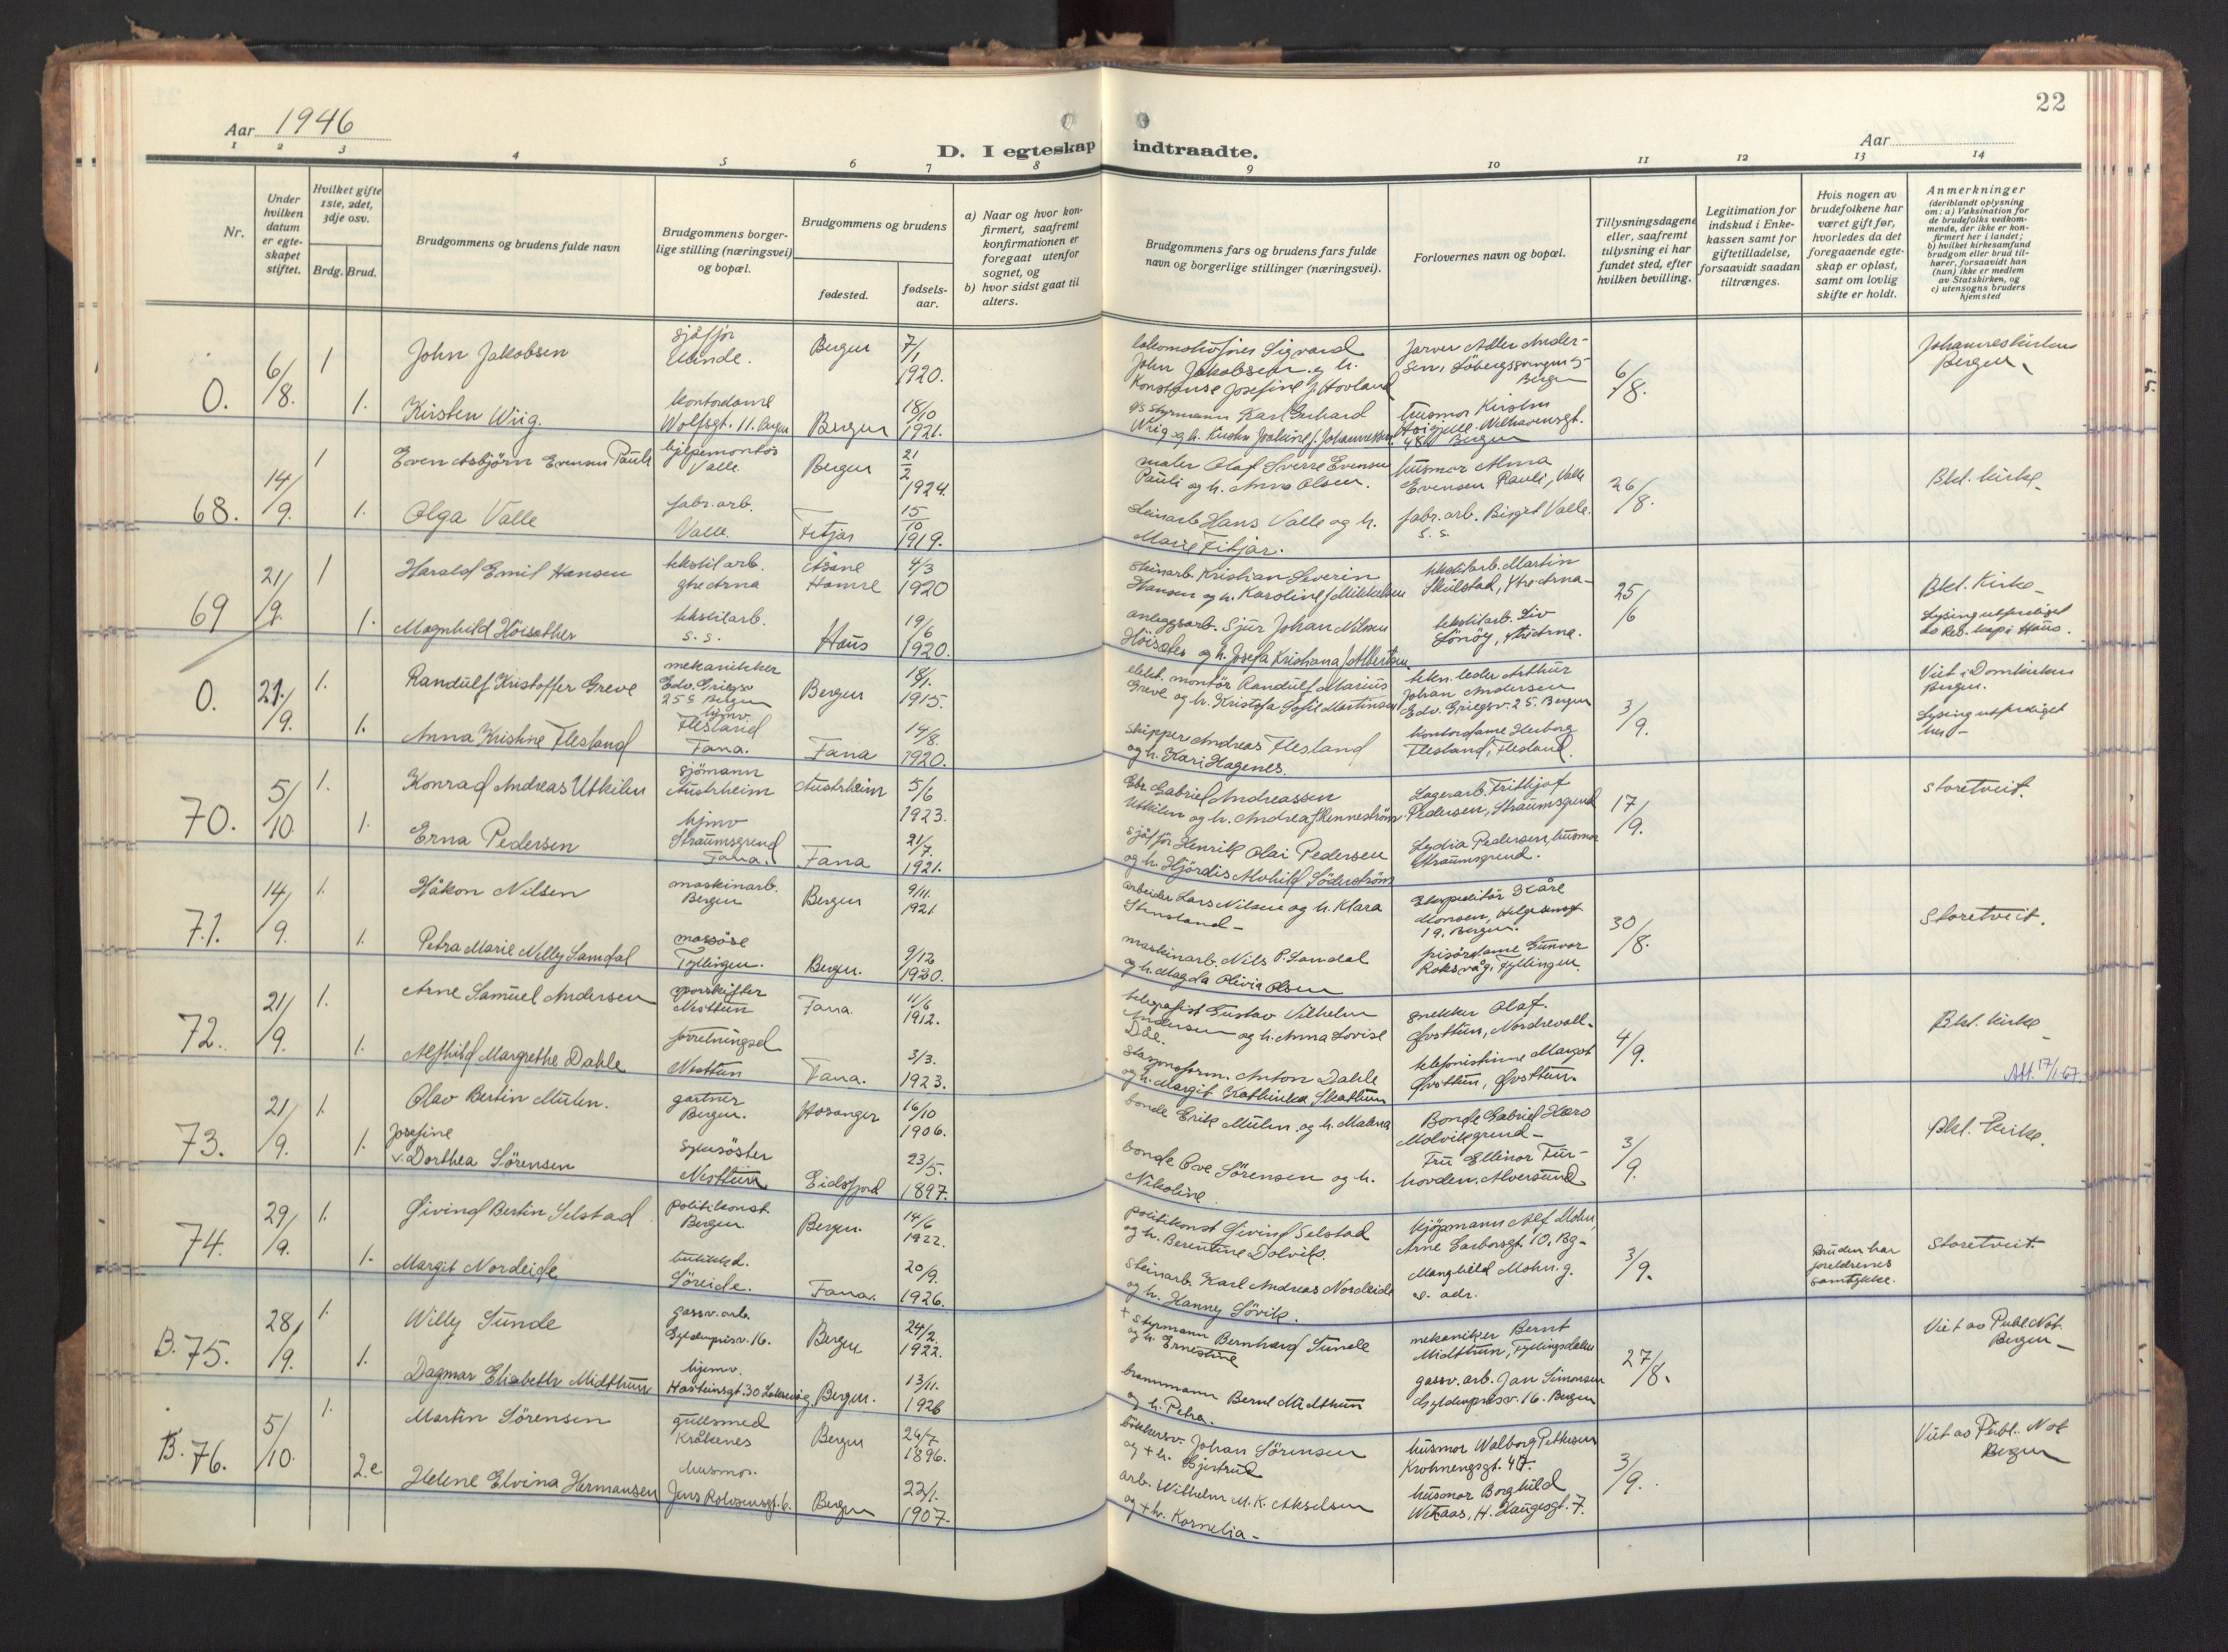 22
Aar 1946
Aar
D. I egteskap indtraadte.
1 2 3 4 5 6 7 8 9 10 11 12 13 14
Nr.
Under hvilken datum er egteskapet stiftet.
Hvilket gifte 1ste, 2det, 3dje osv.
Brdg. Brud.
Brudgommens og brudens fulde navn
Brudgommens borgerlige stilling (næringsvei) og bopæl.
Brudgommens og brudens
fødested.
fødselsaar.
a) Naar og hvor konfirmert, saafremt konfirmationen er foregaat utenfor sognet, og
b) hvor sidst gaat til alters.
Brudgommens fars og brudens fars fulde navn og borgerlige stillinger (næringsvei).
Forlovernes navn og bopæl.
Tillysningsdagene eller, saafremt tillysning ei har fundet sted, efter hvilken bevilling.
Legitimation for indskud i Enkekassen samt for giftetilladelse, forsaavidt saadan tiltrænges.
Hvis nogen av brudefolkene har været gift før, hvorledes da det foregaaende egteskap er opløst, samt om lovlig skifte er holdt.
Anmerkninger
(deriblandt oplysning om: a) Vaksination for de brudefolks vedkommende, der ikke er konfirmert her i landet;
b) hvilket kirkesamfund brudgom eller brud tilhører, forsaavidt han (hun) ikke er medlem av Statskirken, og
c) utensogns bruders hjemsted
0. 6/8. 1 John Jakobsen sjåfør Minde. Bergen 7/1 1920.
Sigvard John Jakobsen og h. Konstanse Josefine f. Hovland
Adler Andersen, Bergen
6/8. Johanneskirken Bergen
1. Kirsten Wiig. kontordame Wolffsgt. 11. Bergen Bergen 18/10 1921.
styrmann Karl Gerhard Wiig og h.
husmor Kirsten Welhavensgt. 48 Bergen
68. 14/9. 1 Even Asbjörn Evensen Pauli hjelpemontör Valle. Bergen 21/2 1924.
maler Olaf Sverre Evensen Pauli og h. Anna Olsen.
husmor Alma Evensen Pauli, Valle
26/8. Bkl. kirke
1. Olga Valle fabr.arb. Valle. Fitjar 15/10 1919.
Steinarb Hans Valle og h. Marie Fitjar.
fabr.arb. Birgit Valle. s. s.
69 21/9. 1 Harald Emil Hansen tekstilarb. Ytre Arna Åsane Hamre 4/3 1920
Steinarb. Kristian Severin Hansen og h. Karoline f. Mikkelsen
tekstilarb. Martin Skulstad, Ytre Arna
25/6 Bkl. Kirke
1. Magnhild Höisæther tekstilarb. s. s. Haus 19/6 1920.
anleggsarb. Sjur Johan Nilsen Höisæter og h. Josefa Kristiana f. Albertsen
tekstilarb. Liv Lönöy, Ytre Arna.
Lysing utferdiget Haus.
0. 21/9. 1. Randulf Kristoffer Greve mekaniker Edv. Griegsv 25 Bergen Bergen 18/1. 1915.
elekt. montör Randulf Marius Greve og h. Kristofa Sofie Martinsen
tekn. leder Arthur Johan Andersen Edv. Griegsv. 25. Bergen
3/9. Viet i Domkirken Bergen.
1. Anna Kristine Flesland hjmv. Flesland Fana. Fana 14/8. 1920.
skipper Andreas Flesland og h. Kari Hagenes.
kontordame Herborg Flesland, Flesland.
Lysing utferdiget her
70. 5/10 1. Konrad Andreas Utkilen sjömann Austrheim Austrheim 5/6 1923.
Gbr. Gabriel Andreassen Utkilen og h. Andrea f.
Lagerarb. Frithjof Pedersen, Straumsgrend
17/9. Storetveit.
1. Erna Pedersen hjmv Straumsgrend Fana. Fana 21/7. 1921.
sjåfför Henrik Olai Pedersen og h. Hjördis Alvhild Söderström
Lydia Pedersen, husmor Straumsgrend.
71. 14/9. 1. Håkon Nilsen maskinarb. Bergen Bergen 9/11. 1921
arbeider Lars Nilsen og h. Klara Stensland
Ekspeditör Kåre Monsen, Helgesensgt 19. Bergen.
30/8. Storetveit.
1. Petra Marie Nelly Samdal massöse Fyllingen. Bergen. 9/12 1920.
maskinarb. Nils P. Samdal og h. Magda Olivia Olsen
frisördame Gunvor Roksvåg, Fyllingen.
72. 21/9. 1. Arne Samuel Andersen sporskifter Nesttun Fana. 11/6 1912.
telegrafist Gustav Vilhelm Andersen og h. Anna Lovise Dåe.
snekker Olaf Östtun, Nordrevoll
4/9. Bkl. kirke
1. Alfhild Margrethe Dahle forretningsd Nesttun Fana. 3/3. 1923.
Stasjonsform. Anton Dahle og h. Margit Kathinka Skathun
telefonistinne Margot Östtun, Östtun.
Att. 17/1 67.
73. 21/9. 1. Olav Bertin Mulen. gartner Bergen. Hosanger 16/10 1906.
bonde Erik Mulen og h. Malena
Bonde Gabriel Molvikgrend
3/9. Bkl. Kirke.
1. Josefine v. Dorthea Sörensen Sykesöster Nesttun Eidsfjord 23/5. 1897.
bonde Ove Sörensen og h. Nikoline.
Fru Ellinor Furhovden. Alversund.
74. 29/9. 1. Öivind Bertin Selstad politikonst. Bergen. Bergen. 14/6 1922.
politikonst Öivind Selstad og h. Berentine Dolvik.
kjöpmann Alf Mohn, Arne Garborsgt 10, Bg
3/9. Bruden har foreldrenes samtykke. Storetveit.
1. Margit Nordeide butikkd. Söreide. Fana. 20/9. 1926.
Steinarb. Karl Andreas Nordeide og h. Hanny Sörvik.
Manghild Mohn. s. adr.
B. 75. 28/9. 1. Willy Sunde gassv. arb. Gyldenprisv. 16. Bergen 24/2. 1922.
+ Styrmann Bernhard Sunde og h. Ernestine
mekaniker Bernt Midthun, Fyllingsdalen
27/8. Viet av Publ. Not. Bergen
1. Dagmar Elisabeth Midtthun hjemv. Hasteinsgt. 30 Laksevåg Bergen. 13/11. 1926
brannmann Bernt Midthun og h. Petra.
gassv. arb. Jan Simonsen Gyldenprisv. 16. Bergen
B. 76. 5/10. 1. Martin Sörensen gullsmed Kråkenes Bergen 26/7 1896.
bökkersv. Johan Sörensen og + h. Gjertrud
husmor Walborg Pettersen Krohnengsgt. 47.
3/9. Viet av Publ. Not Bergen
2.e. Helene Elvina Hermansen husmor. Jens Rolvsensgt. 6. Bergen 22/1. 1907.
arb. Wilhelm M. K. Akselsen og + h. Kornelia
husmor Borghild H. Haugesgt. 7.